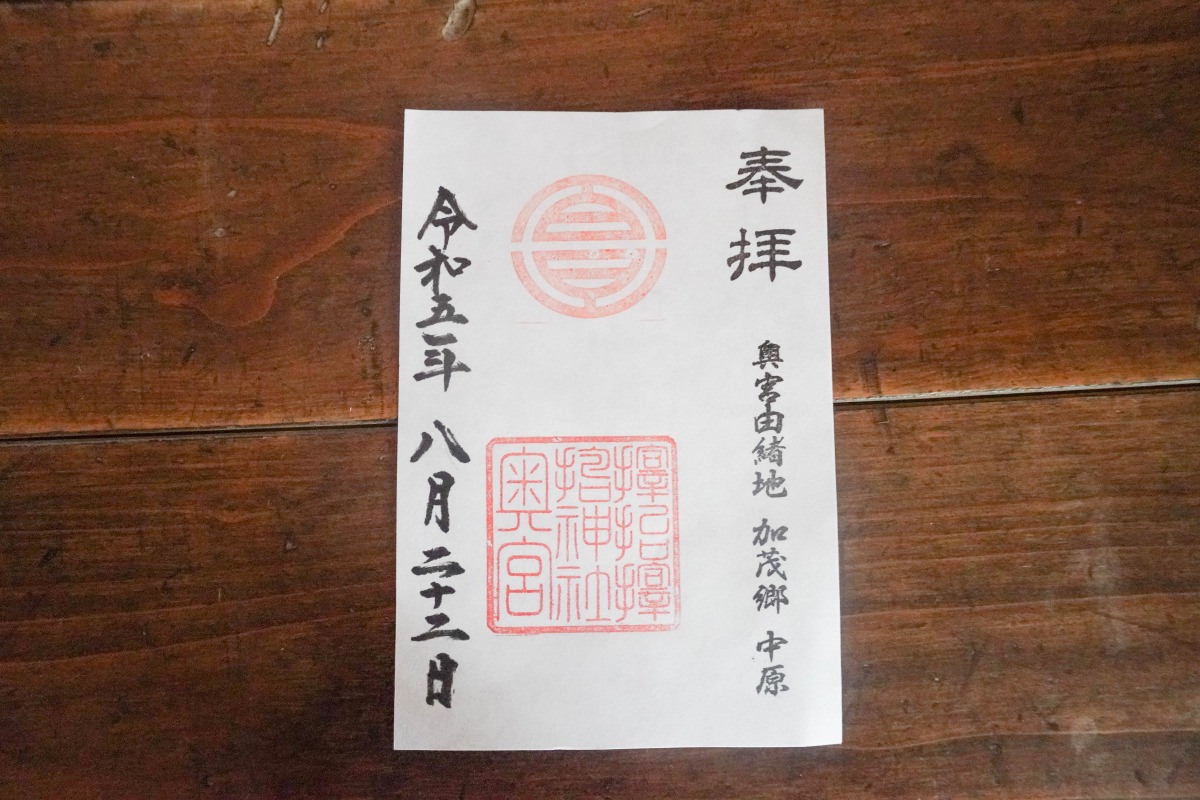 奉拝
奥宮由緒地 加茂郷 中原
神社
奥宮
令和五年 八月二十二日